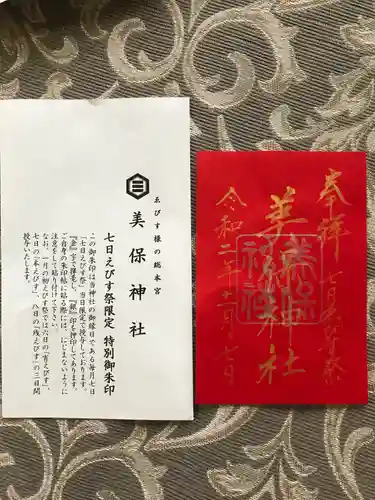 ゑびす様の総本宮
美保神社
七日えびす祭限定 特別御朱印
この御朱印は当神社の御縁日である毎月七日
「七日えびす祭」当日限定で授与しております。
『金』字で揮毫し、『銀』印を押印してあります。
ご自身の朱印帖に貼る際には、にじまないように
注意をして貼り付けて下さい。
なお、一月の初えびす祭では六日の「宵えびす」、
七日の「本えびす」、八日の「残えびす」の三日間
授与いたします。
奉拝
美保神社
令和二年十二月七日
美保神社